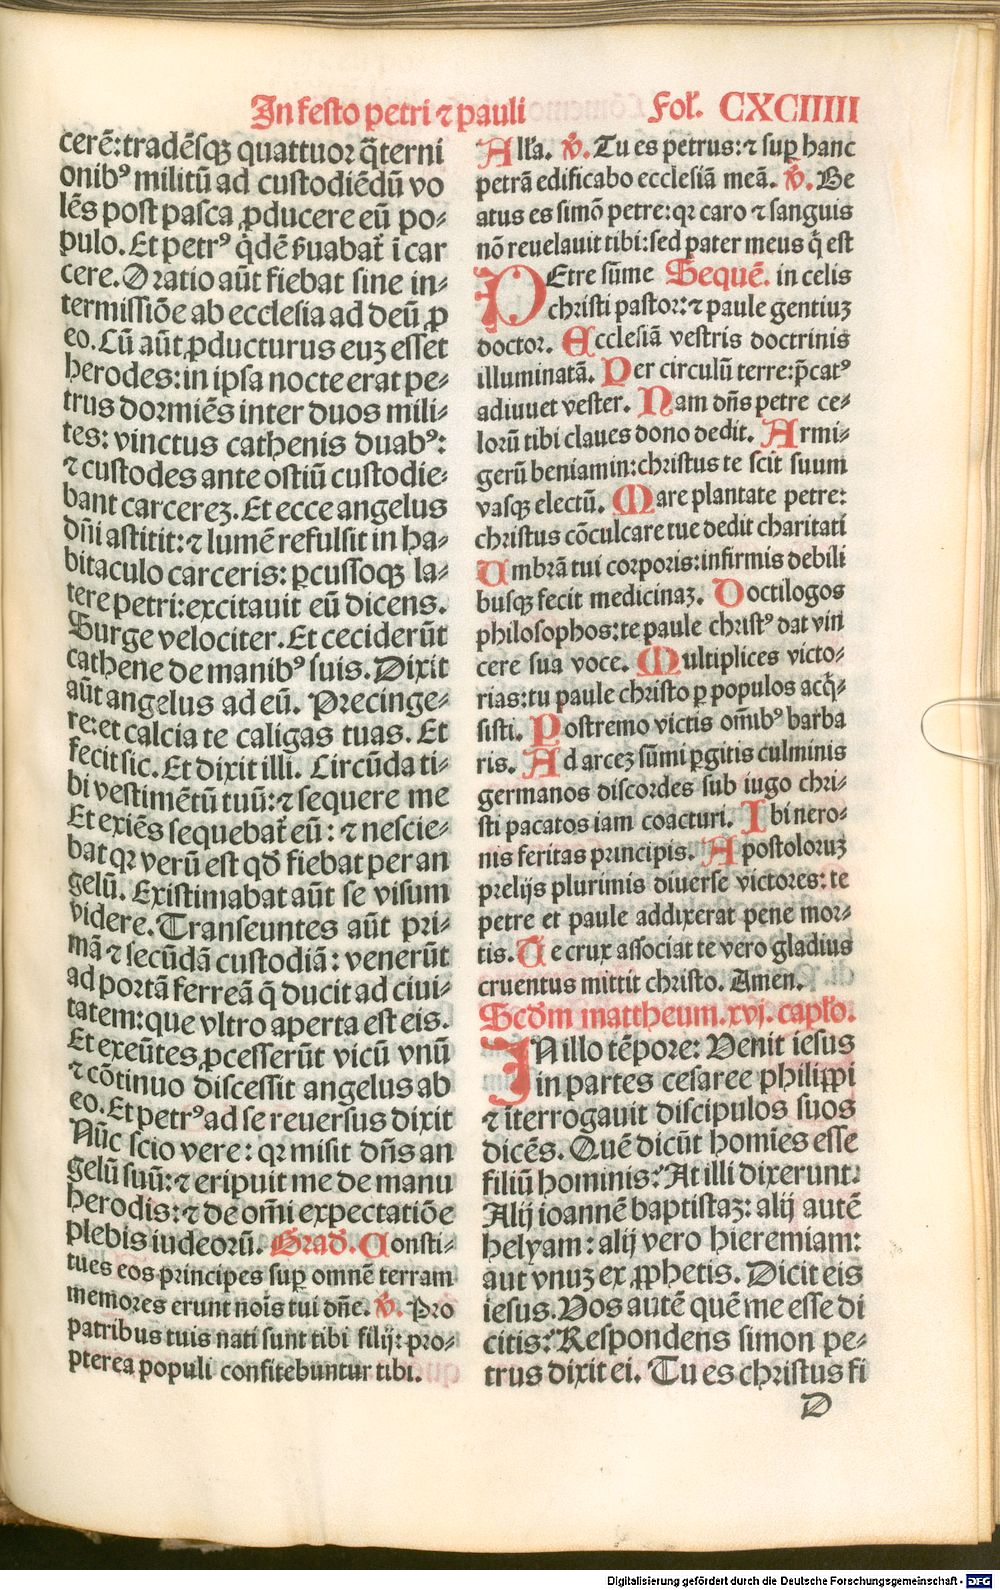 In festo petri ⁊ pauli
Fol̓. CXCIIIII
cerē: tradēsqꝫ quattuor q̄terni
onibꝰ militū ad custodiēdū vo
lēs post pasca ꝓducere eū po-
pulo. Et petrꝰ q̇dē ẜuabat̃ ī car
cere. Oratio aūt fiebat sine in-
termissiōe ab ecclesia ad deū ꝓ
eo. Cū aūt ꝓducturus euꝫ esset
herodes: in ipsa nocte erat pe-
trus dormiēs inter duos mili-
tes: vinctus cathenis duabꝰ:
⁊ custodes ante ostiū custodie-
bant carcereꝫ. Et ecce angelus
dñi astitit: ⁊ lumē refulsit in ha-
bitaculo carceris: ꝑcussoqꝫ la-
tere petri: excitauit eū dicens.
Surge velociter. Et ceciderūt
cathene de manibꝰ suis. Dixit
aūt angelus ad eū. Precinge-
re: et calcia te caligas tuas. Et
fecit sic. Et dixit illi. Circūda ti-
bi vestimētū tuū: ⁊ sequere me
Et exiēs sequebat̃ eū: ⁊ nescie-
bat qꝛ verū est qd̓ fiebat per an
gelū. Existimabat aūt se visum
videre. Transeuntes aūt pri-
mā ⁊ secūdā custodiā: venerūt
ad portā ferreā q̄ ducit ad ciui-
tatem: que vltro aperta est eis.
Et exeūtes ꝓcesserūt vicū vnū
⁊ cōtinuo discessit angelus ab
eo. Et petrꝰ ad se reuersus dixit
Nūc scio vere: qꝛ misit dñs an
gelū suū: ⁊ eripuit me de manu
herodis: ⁊ de om̄i expectatiōe
plebis iudeorū. Grad̓. Consti-
tues eos principes suꝑ omnē terram
memores erunt noīs tui dñe. ℣. Pro
patribus tuis nati sunt tibi filij: pro-
pterea populi confitebuntur tibi.
All̓a. ℣. Tu es petrus: ⁊ suꝑ hanc
petrā edificabo ecclesiā meā. ℣. Be
atus es simō petre: qꝛ caro ⁊ sanguis
nō reuelauit tibi: sed pater meus q̇ est
PEtre sūme Sequē. in celis
christi pastor: ⁊ paule gentiuꝫ
doctor. Ecclesiā vestris doctrinis
illuminatā. Per circulū terre: p̄catꝰ
adiuuet vester. Nam dñs petre ce-
lorū tibi claues dono dedit. Armi-
gerū beniamin: christus te scit suum
vasqꝫ electū. Mare plantate petre:
christus cōculcare tue dedit charitati
Umbrā tui corporis: infirmis debili
busqꝫ fecit medicinaꝫ. Doctilogos
philosophos: te paule christꝰ dat vin
cere sua voce. Multiplices victo-
rias: tu paule christo ꝑ populos acq̇-
sisti. Postremo victis om̄ibꝰ barba
ris. Ad arceꝫ sūmi ꝑgitis culminis
germanos discordes sub iugo chri-
sti pacatos iam coacturi. Ibi nero-
nis feritas principis. Apostoloruꝫ
prelijs plurimis diuerse victores: te
petre et paule addixerat pene mor-
tis. Te crux associat te vero gladius
cruentus mittit christo. Amen.
Scd̓m mattheum. xvj. capl̓o.
IN illo tēpore: Venit iesus
in partes cesaree philiꝓpi
⁊ īterrogauit discipulos suos
dicēs. Quē dicūt homīes esse
filiū hominis? At illi dixerunt.
Alij ioannē baptistaꝫ: alij autē
helyam: alij vero hieremiam:
aut vnuꝫ ex ꝓphetis. Dicit eis
iesus. Vos autē quē me esse di
citis? Respondens simon pe-
trus dixit ei. Tu es christus fi
D
Digitalisierung gefördert durch die Deutsche Forschungsgemeinschaft - DFG